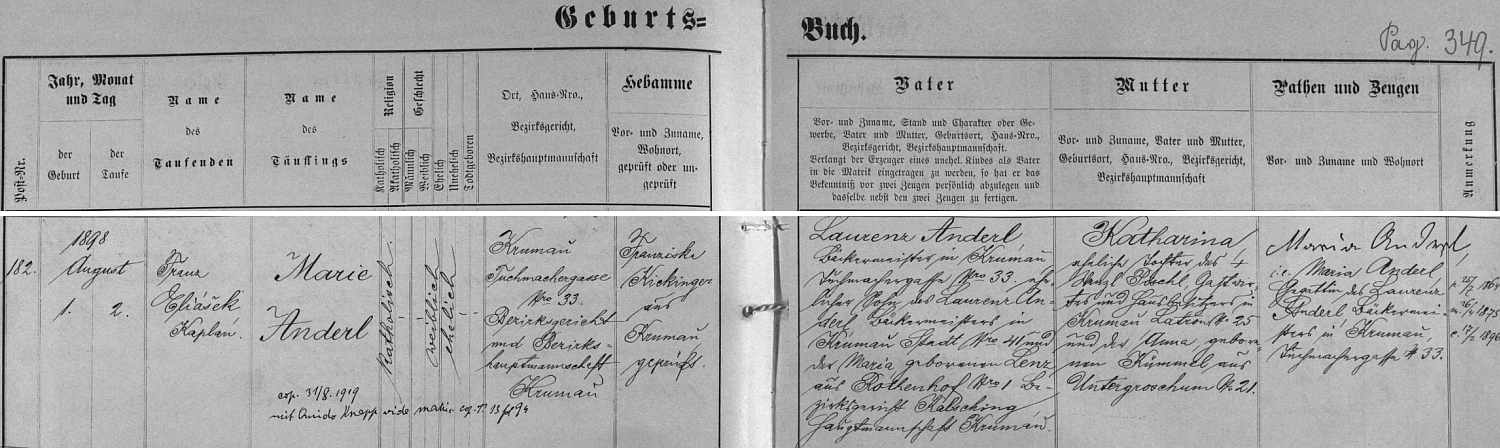 Geburts=
Buch.
Pag. 349.
Post-Nr.
Jahr, Monat
und Tag
der
Geburt
der
Taufe
Name
des
Taufenden
Name
des
Täuflings
Religion
Katholisch
Akatholisch
Geschlecht
Männlich
Weiblich
Ehelich
Unehelich
Todtgeboren
Ort, Haus-Nro.,
Bezirksgericht,
Bezirkshauptmannschaft
Hebamme
Vor- und Zuname,
Wohnort,
geprüft oder un-
geprüft
Vater
Vor- und Zuname, Stand und Charakter oder Ge-
werbe, Vater und Mutter, Geburtsort, Haus-Nro.,
Bezirksgericht, Bezirkshauptmannschaft.
Verlangt der Erzeuger eines unehel. Kindes als Vater
in die Matrik eingetragen zu werden, so hat er das
Bekenntniß vor zwei Zeugen persönlich abzulegen und
dasselbe nebst den zwei Zeugen zu fertigen.
Mutter
Vor- und Zuname, Vater und Mutter,
Geburtsort, Haus-Nro., Bezirksgericht,
Bezirkshauptmannschaft
Pathen und Zeugen
Vor- und Zuname und Wohnort
Anmerkung
182.
1898
August
1. 2.
Franz
Eliášek
Kaplan.
Marie
Anderl
katholisch
weiblich
ehelich
Krumau
Tuchmachergasse
Nro 33.
Bezirksgericht
und Bezirks-
hauptmannschaft
Krumau
Franziska
Kickinger
aus
Krumau
geprüft.
cop. 31/8. 1919
mit Guido Knapp vide matr.
Laurenz Anderl
Bäckermeister in Krumau
Tuchmachergasse Nro 33. ehe-
licher Sohn des Laurenz An-
derl Bäckermeisters in
Krumau Stadt Nro 41 und
der Maria geborenen Lenz
aus Rothenhof Nro 1 Be-
zirksgericht Kalsching
Hauptmannschaft Krumau.
Katharina
eheliche Tochter des +
Wenzl Pöschl, Gastwir-
tes und Hausbesitzers in
Krumau Latron No 25
und der Anna gebore-
nen Kümmel aus
Untergroschum No 21.
Maria Anderl,
i.e. Maria Anderl
Gattin des Laurenz
Anderl Bäckermei-
sters in Krumau,
Tuchmachergasse No 33.